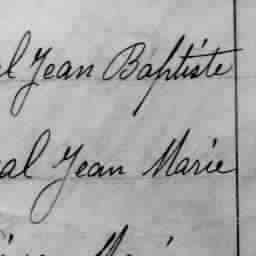 al Jean Baptiste
al Jean Marie